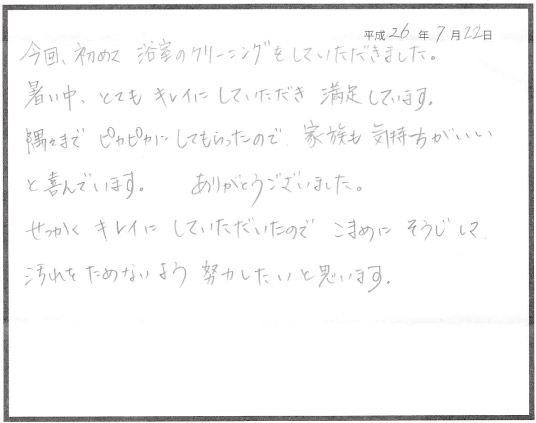 平成26年7月22日
今回、初めて 浴室のクリーニングをしていただきました。
暑い中、とても キレイにしていただき 満足しています。
隅々まで ピカピカにしてもらったので 家族も 気持ちがいい
と喜んでいます。 ありがとうございました。
せっかく キレイに していただいたので こまめに そうじして
汚れをためないよう 努力したいと思います。